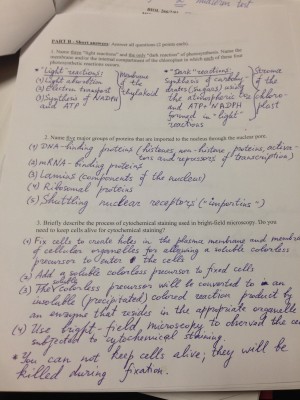 midterm test
PART B - Short answers: Answer all questions (5 points each).
1. Name three "light reactions" and the only "dark reaction" of photosynthesis. Name the
membrane and/or the internal compartment of the chloroplast in which each of these four
photosynthetic reactions occurs.
"Light" reactions:
(1) Light absorbtion
(2) Electron transport
(3) Synthesis of NADPH
and ATP
Membrane
of the
thylakoid
"Dark" reactions:
synthesis of carbohy-
drates (sugars) using
the atmospheric CO2
and ATP + NADPH
formed in "light"
reactions
Stroma
of the
chloro-
plast
2. Name five major groups of proteins that are imported to the nucleus through the nuclear pore.
(1) DNA-binding proteins (histones, non-histone proteins, activa-
tors and repressors of transcription)
(2) mRNA-binding proteins
(3) Lamins (components of the nucleus)
(4) Ribosomal proteins
(5) Shuttling nuclear receptors ("importins")
3. Briefly describe the process of cytochemical staining used in bright-field microscopy. Do you
need to keep cells alive for cytochemical staining?
(1) Fix cells to create holes in the plasma membrane and membra
of cellular organelles for allowing a soluble colorless
precursor to enter the cells
(2) Add a soluble colorless precursor to fixed cells
(3) The soluble colorless precursor will be converted to an
insoluble (precipitated) colored reaction product by
an enzyme that resides in the appropriate organelle
(4) Use bright-field microscopy to observed the ce
subjected to cytochemical staining.
* You can not keep cells alive; they will be
killed during fixation.